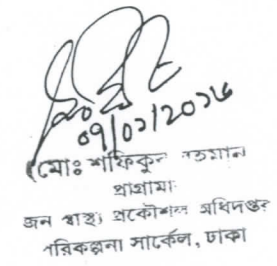 ০৭/০১/২০১৬
(মোঃ শফিকুর রহমান)
প্রোগ্রামার
জন স্বাস্থ্য প্রকৌশল অধিদপ্তর
পরিকল্পনা সার্কেল, ঢাকা